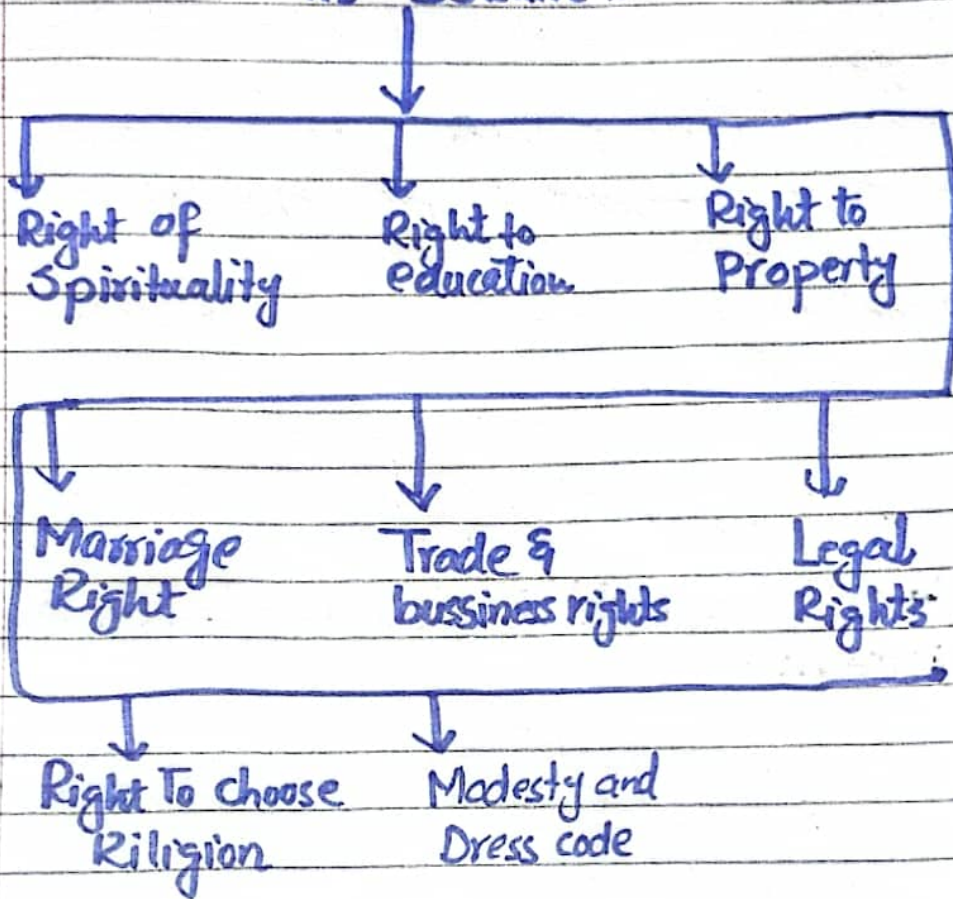 Right of
Spirituality
Right to
education
Right to
Property
Marriage
Right
Trade &
bussiness rights
Legal
Rights
Right To choose
Riligion
Modesty and
Dress code